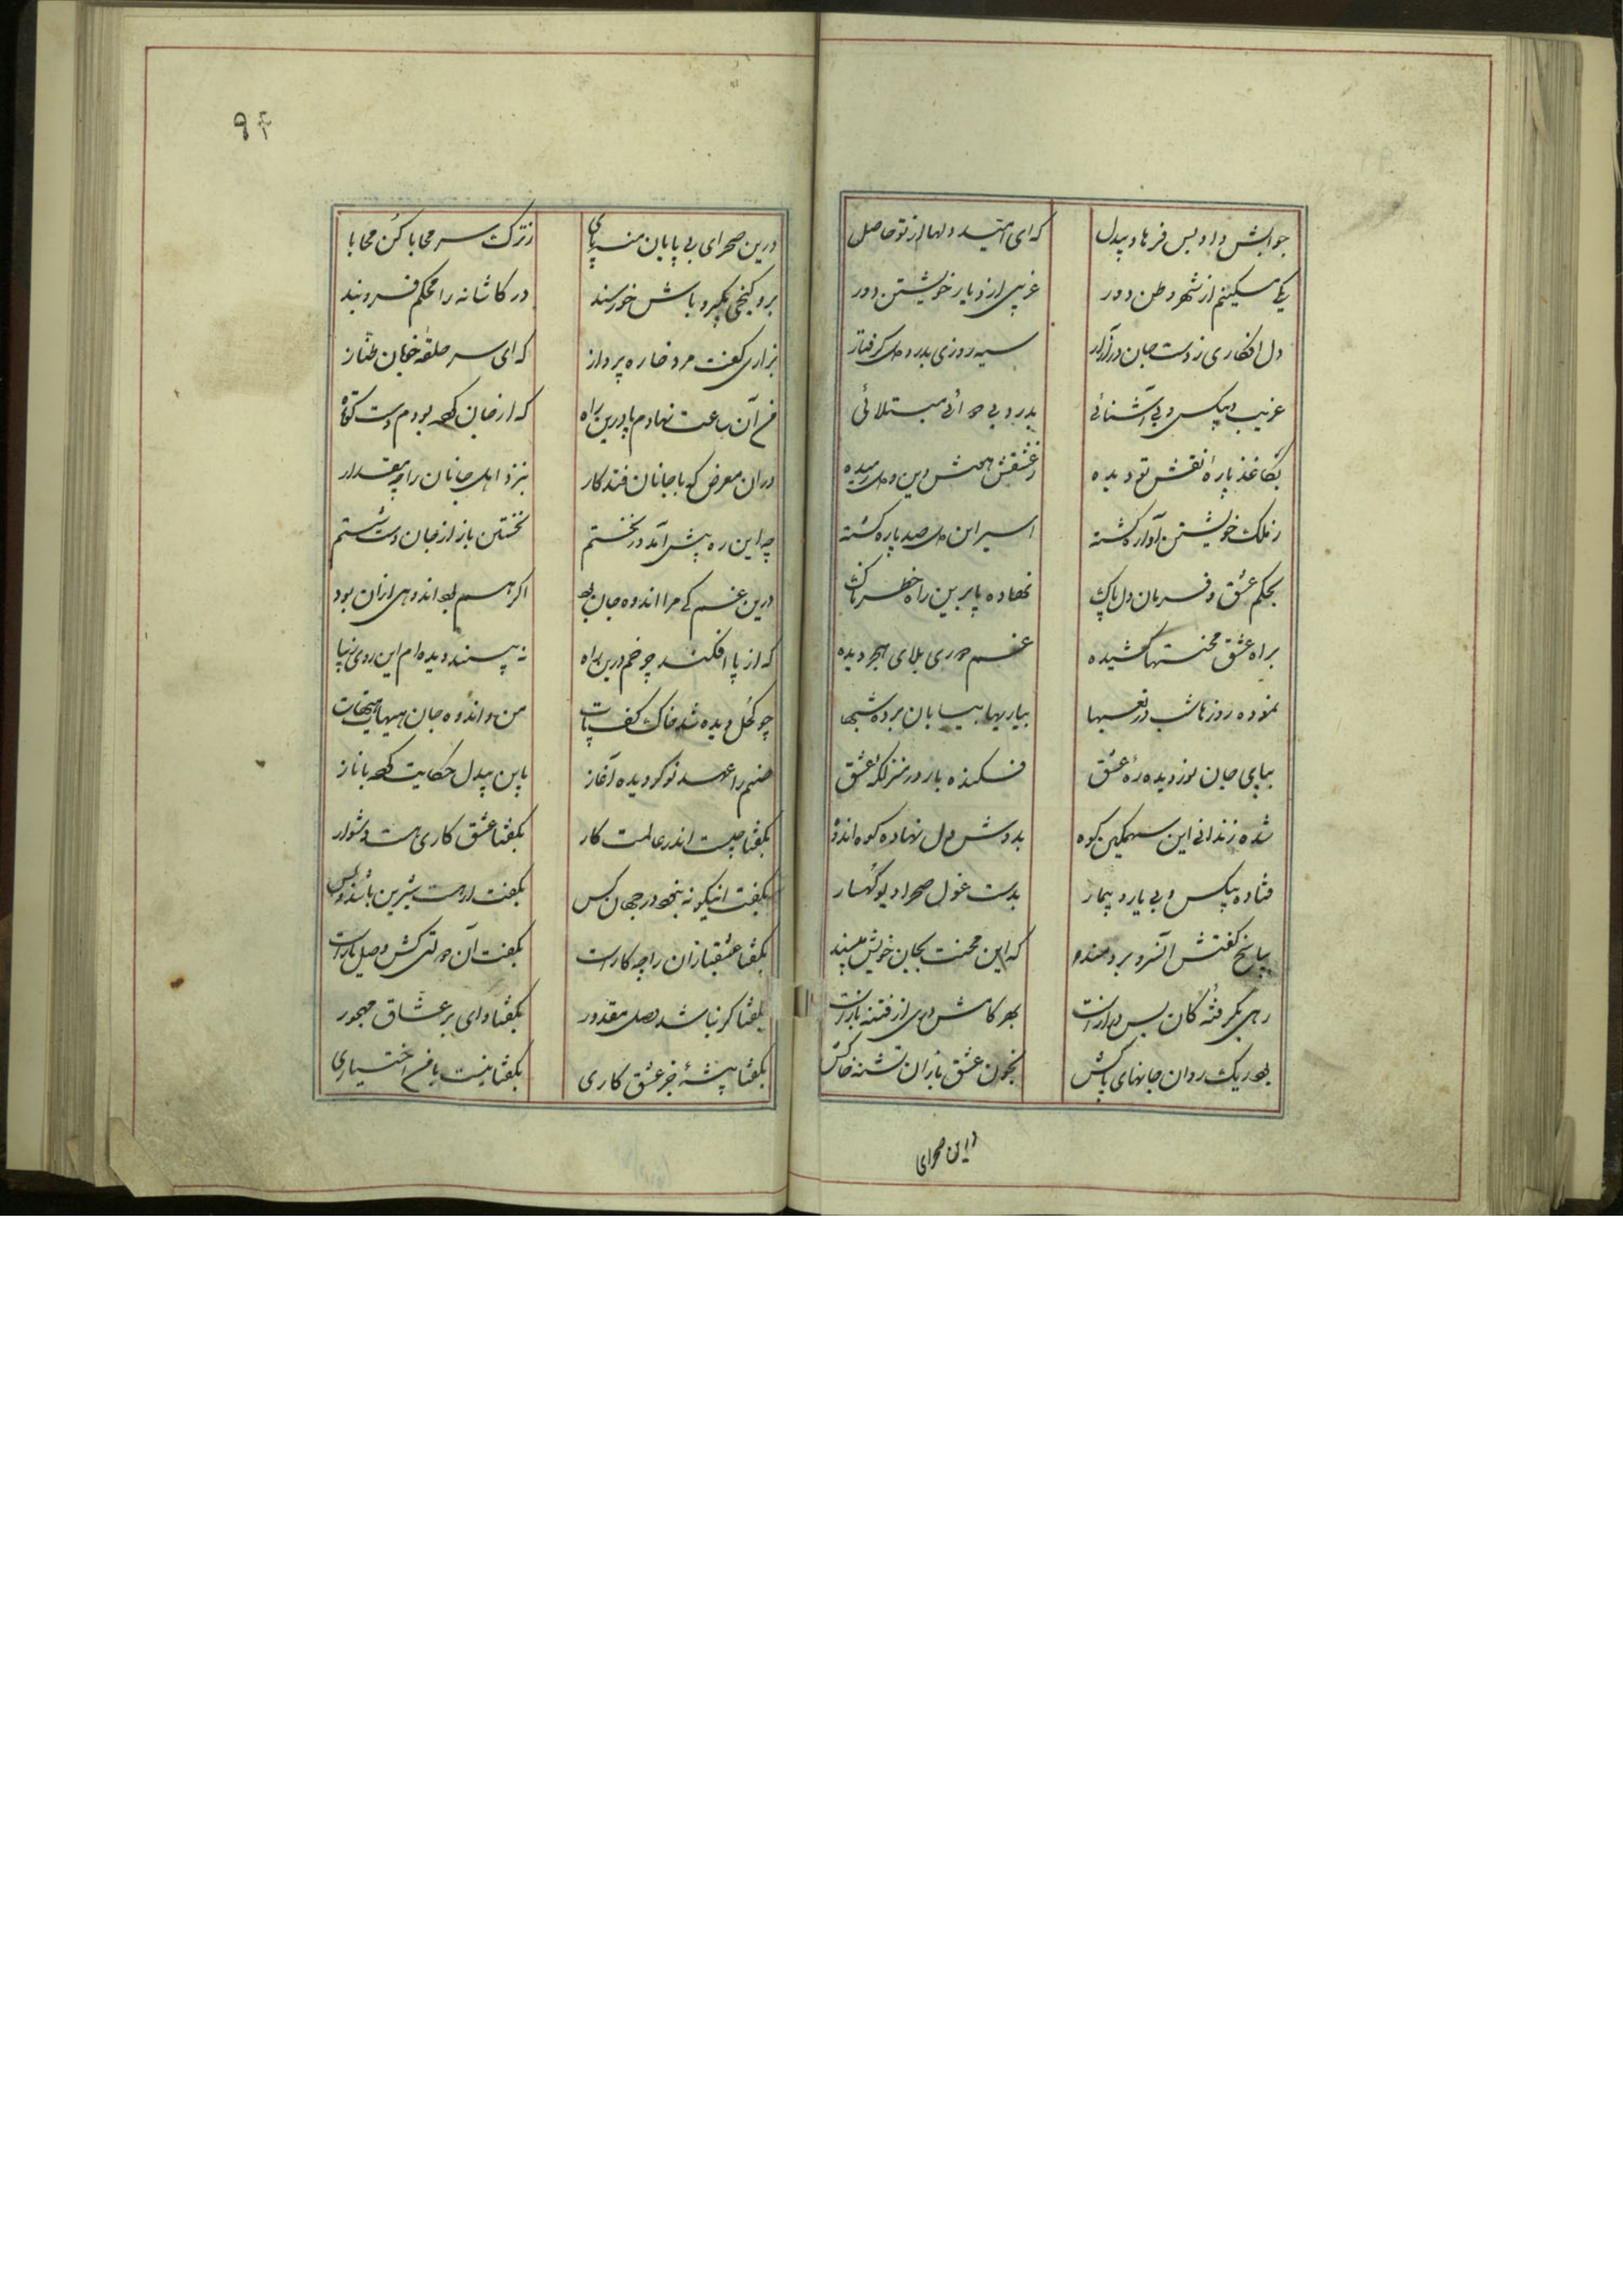 جوابش داد پس فرهاد بیدل
که ای امید دلها از تو حاصل
یکی مسکینم از شهر وطن دور
غریبی از دیار خویشتن دور
دل افکاری ز دست جان در آزار
سیه روزی بدرد دل گرفتار
غریب و بیکس و بی آشنائی
بدرد بی دوائی مبتلائی
بکاغذ پاره نقش تو دیده
ز عشقش هوش و دین و دل رمیده
ز ملک خویشتن آواره گشته
اسیر این دل صد پاره گشته
بحکم عشق و فرمان دل پاک
نهاده پا برین راه خطرناک
براه عشق محنتها کشیده
غم دوری بلای هجر دیده
نموده روزها شب در تعبها
بیاریها بیابان برده شبها
بپای جان نوردیده ره عشق
فکنده بار در منزلگه عشق
شده زندانی این سهمگین کوه
بدوش دل نهاده کوه اندوه
فتاده بیکس و بی یار و بیمار
بدست غول صحرا دیو کهسار
بپاسخ گفتش آن سرو برومند
که این محنت بجان خویش مپسند
رهی بگرفته کان بس دراز است
بهر کامش دری از فتنه باز است
بهر ریک روان جانهای پاکش
بخون عشق بازان تشنه خاکش
این صحرای
۹۴
درین صحرای بی پایان منه پای
ز ترک سر محابا کن محابا
برو کنجی بگیر و باش خورسند
در کاشانه را محکم فروبند
بزاری گفت مرد خاره پرداز
که ای سر حلقه خوبان طناز
من آن ساعت نهادم پا درین راه
که از جان کرده بودم دست کوتاه
در آن معرض که با جانان فتد کار
بنزد اهل جانان را چه مقدار
چه این ره پیش آمد در نخستم
نخستین باز از جان دست شستم
درین غم کی مرا اندوه جان بود
اگر هم بود اندوهی از آن بود
که از پا افکند چو خم درین راه
نه بیند دیده ام این روی زیبا
چو کحل دیده شد خاک کف پات
من و اندوه جان هیهات هیهات
صنم را عهد نو کردیده آغاز
باین بیدل حکایت کرد با ناز
بگفتا چیست اندر عالمت کار
بگفتا عشق کاری هست دشوار
بگفت اینگونه نبود در جهان کس
بگفت ار هست شیرین باشد و بس
بگفتا عشقبازان را چه کار است
بگفت آن دولتی کش وصل یار است
بگفتا گر نباشد وصل مقدور
بگفتا وای بر عشاق مهجور
بگفتا پیشه جز عشق کاری
بگفتا نیست با من اختیاری